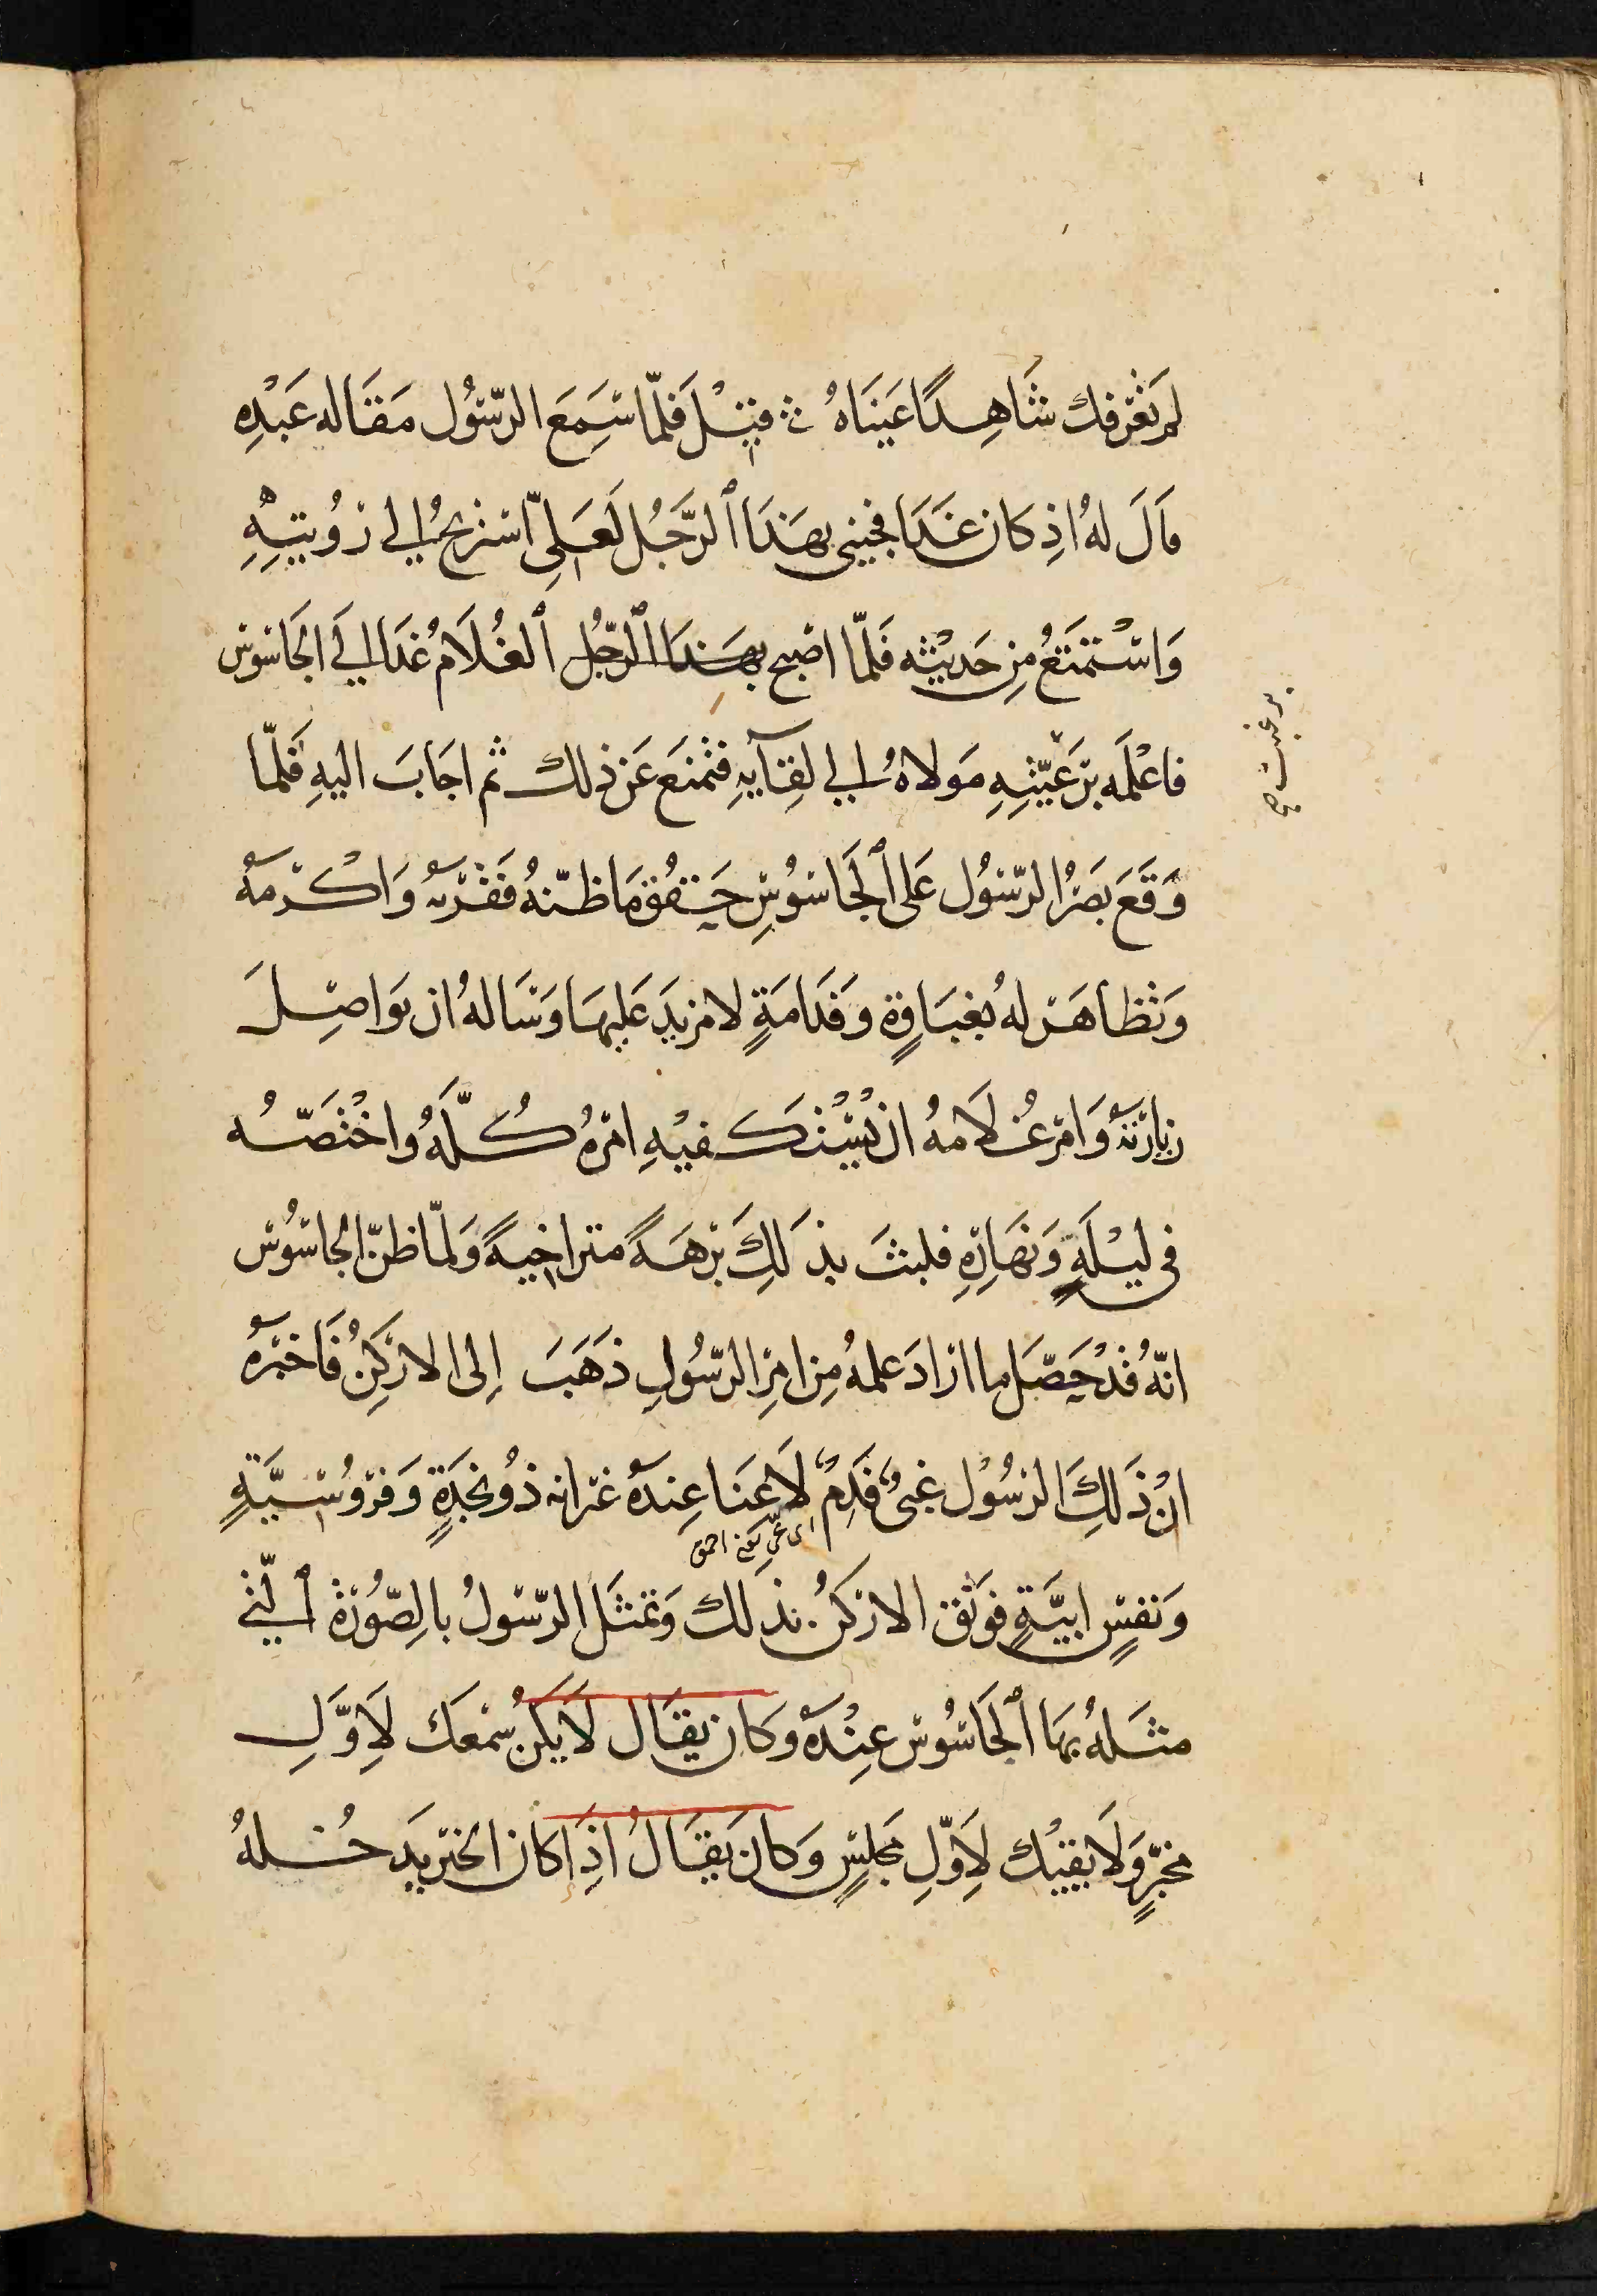 لم تعرفك شَاهِدًا عَيْنَاهُ في قبْل فَلَمّا سَمِعَ الرّسُول مَقَاله عَبْدِه
قَالَ لهُ اذِ كان غَدَا فجيني بهَذَا الرَّجُل لَعَلِي اسْتريحُ الي رُويتِهِ
وَاسْتمْتَعُ مِن حَديثه فَلمّا اصْبح بهَذَا الرّجُل الغُلَامُ غدَا الي الجَاسُوس
فاعْلمَه برَغْبَتِهِ مَولاهُ الي لِقآيهِ فتمْنَعَ عَن ذلك ثم اجَابَ اليهِ فَلمّا
برغبت صح
وَقَعَ بَصَرُ الرّسُول عَلى الجَاسُوسِ حَقق مَا ظنّهُ فَقرّبه وَاكْرمَهُ
وَتظاهَر لهُ بغبَاوةٍ وَفَدَامَةٍ لا مزيدَ عَليهَا وَسَالهُ ان يوَاصِلَ
زيارتهُ وَامر غُلَامهُ ان يُشرك فيْهِ امرهُ كُلَّهُ واخْتصّهُ
في ليْلَهِ وَنهَارِهِ فلبثَ بذَلِكَ بُرْهَةً متراخيةً وَلمّا ظنّ الجاسُوس
انّهُ قَدْ حَصّل ما ارَادَ علمهُ مِن امرِ الرّسُولِ ذَهَبَ إلى الاركنُ فَاخْبَرهُ
انْ ذَلِكَ الرسُوْل غبىٌ فَدِمٌ لَا غنَا عِندَهُ غير انه ذُو نجْدَةٍ وَفروُسيَّةٍ
اى عى يعنے احمق
وَنفسٍ ابيَّةٍ فوَثق الاركنُ بذلك وَتمثَل الرّسُولُ بالصّوُرَة الّتي
مثلهُ بهَا الجَاسُوس عِنْدَهُ وكان يقَال لَا يَكُن سمْعَك لِاَوَّلِ
مخبرٍ وَلَا يقينُك لِاَوّلِ مجلسٍ وَكان يقَالُ اذِا كان الخبر يَدخُلهُ